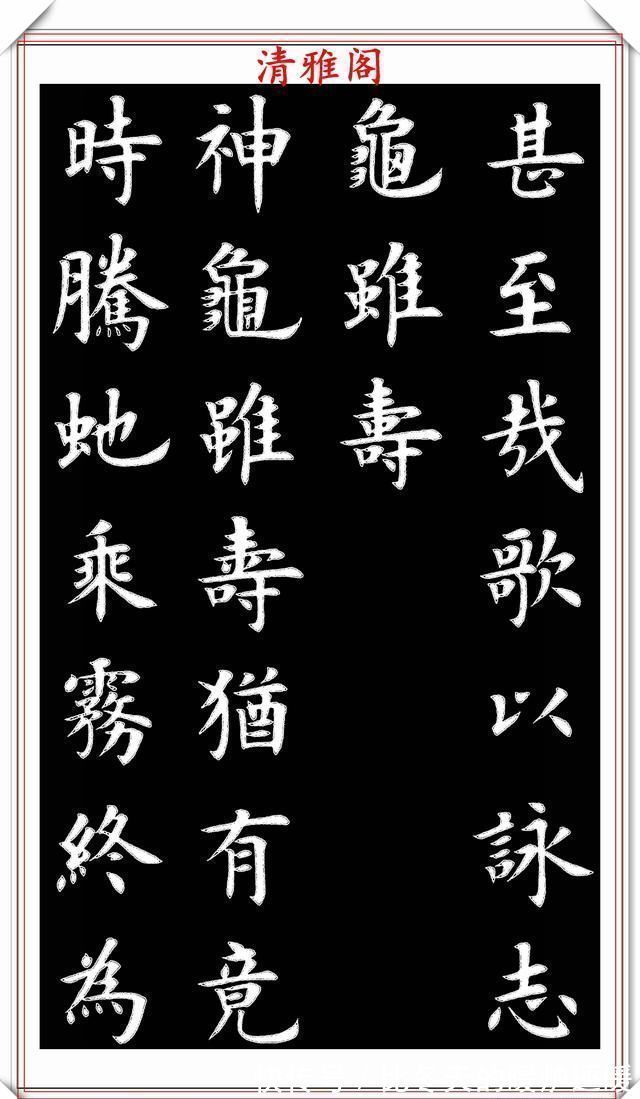 清雅阁
甚至哉歌以詠志
龜雖壽
神龜雖壽猶有竟
時騰虵乘霧終為